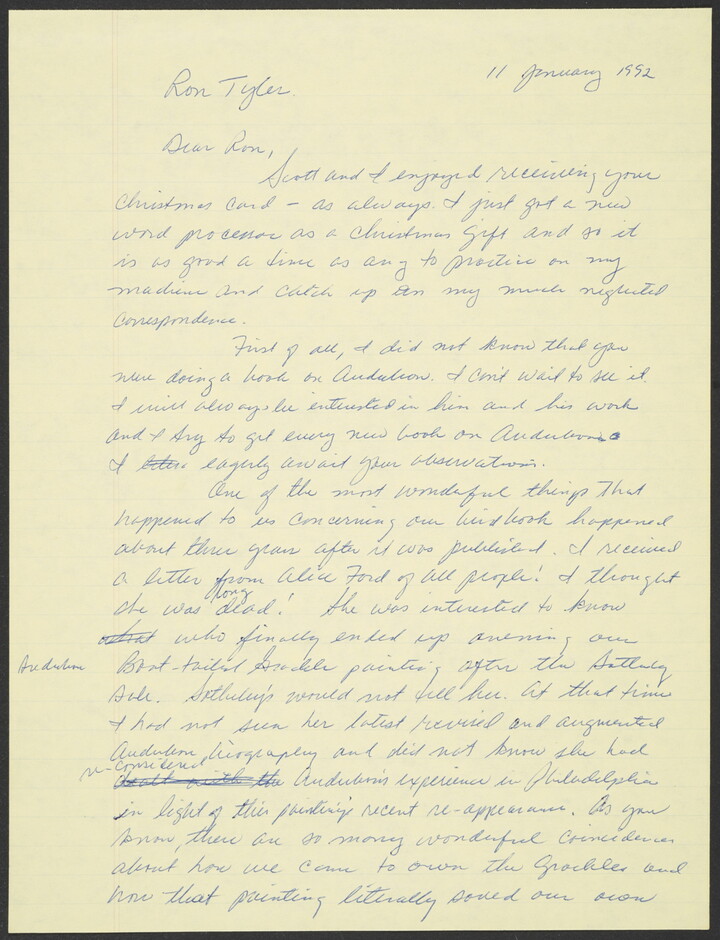 11 January 1992
Ron Tyler.
Dear Ron,
Scott and I enjoyed receiving your
Christmas card – as always. I just got a new
word processor as a Christmas Gift and so it
is as good a time as any to practice on my
machine and catch up on my much neglected
correspondence.
First of all, I did not know that you
were doing a book on Audubon. I can't wait to see it.
I will always be interested in him and his work
and I try to get every new book on Audubon.
I eagerly await your observations.
One of the most wonderful things that
happened to us concerning our bird book happened
about three years after it was published. I received
a letter from Alice Ford of all people! I thought
she was long dead! She was interested to know
what who finally ended up owning our
Audubon Boat-tailed Grackle painting after the Sotheby
sale. Sotheby's would not tell her. At that time
I had not seen her latest revised and augmented
Audubon biography and did not know she had
re-considered dealt with the Audubon's experience in Philadelphia
in light of this painting's recent re-appearance. As you
know, there are so many wonderful coincidences
about how we came to own the Grackles and
how that painting literally saved our own